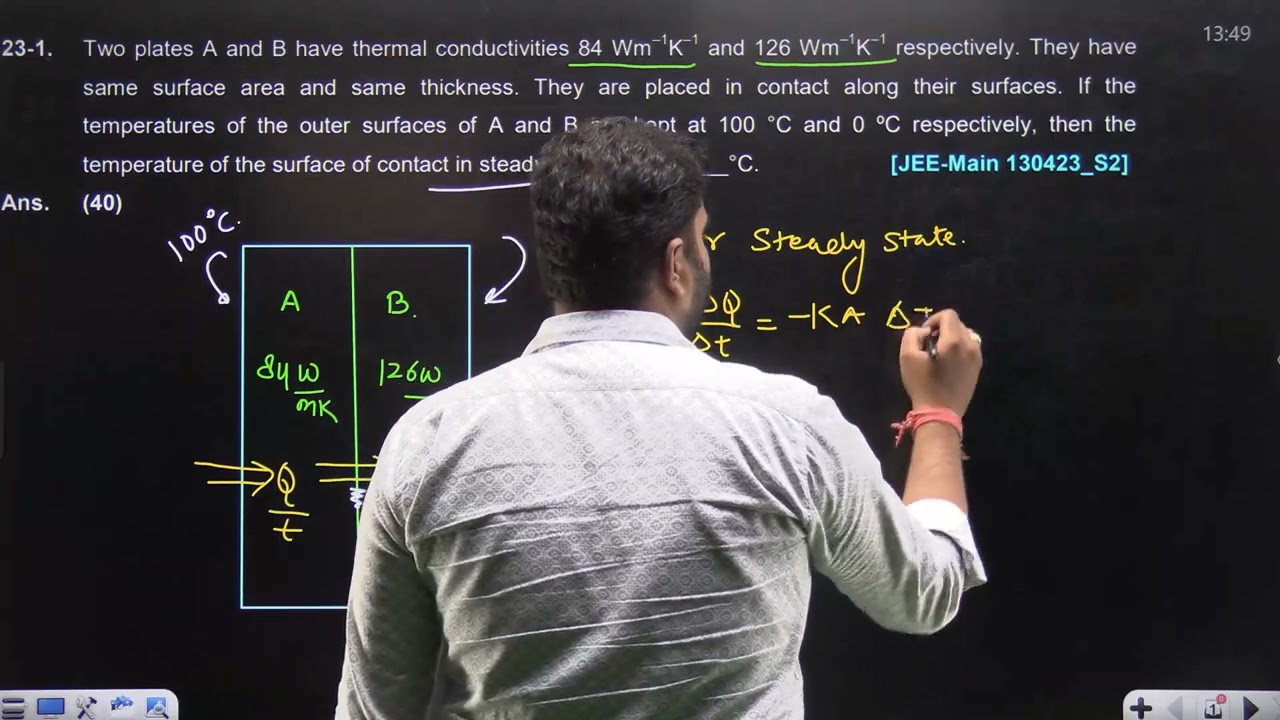 13:49
23-1. Two plates A and B have thermal conductivities 84 Wm⁻¹K⁻¹ and 126 Wm⁻¹K⁻¹ respectively. They have
same surface area and same thickness. They are placed in contact along their surfaces. If the
temperatures of the outer surfaces of A and B at 100 °C and 0 ºC respectively, then the
temperature of the surface of contact in °C. [JEE-Main 130423_S2]
Ans. (40)
100°C.
Steady state.
A B.
Q/Δt = -KA Δ
84 W/mK 126W
Q/t
1